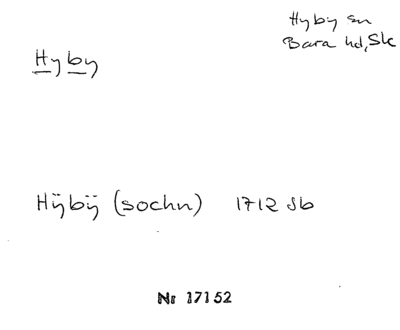 Hyby sn
Bara hd, Sk
Hyby
Hÿbÿ (sochn) 1712 Jb
Nr 17152